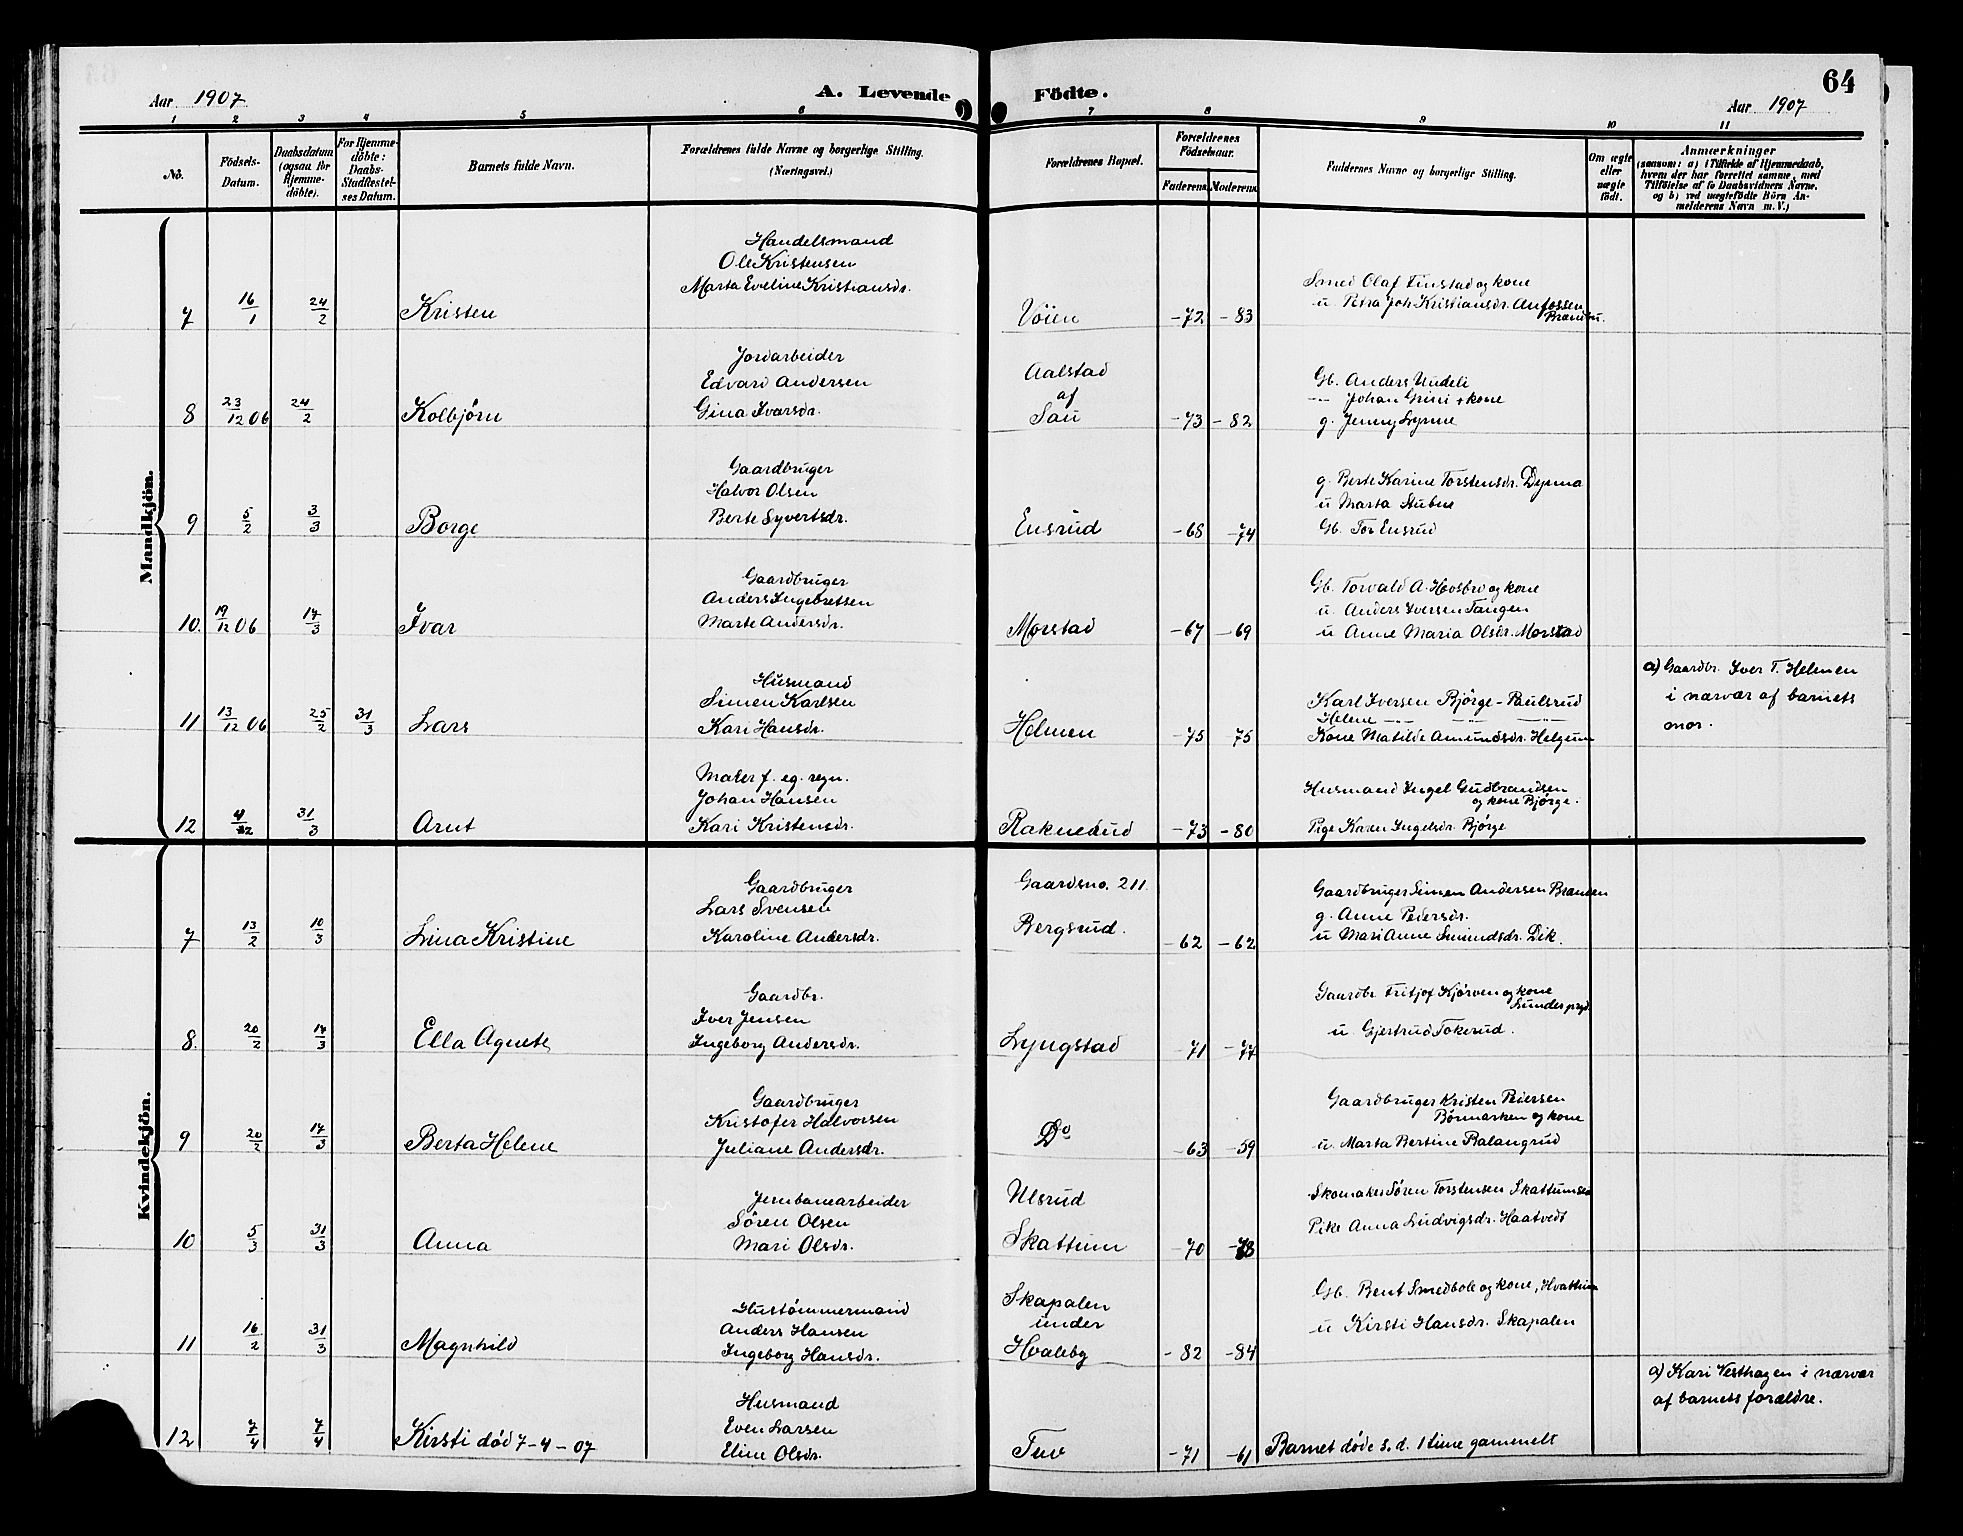 64
Aar 1907
A. Levende Födte.
Aar 1907
1 2 3 4 5 6 7 8 9 10 11
No.
Födsels-Datum.
Daabsdatum (ogsaa for Hjemme-döbte).
For Hjemme-döbte: Daabs-Stadfestel-ses Datum.
Barnets fulde Navn.
Forældrenes fulde Navne og borgerlige Stilling. (Næringsvei.)
Forældrenes Bopæl.
Forældrenes Födselsaar.
Faderens Moderens
Faddernes Navne og borgerlige Stilling.
Om ægte eller uægte födt.
Anmærkninger
(saasom: a) i Tilfælde af Hjemmedaab,
hvem der har forrettet samme, med
Tilföielse af to Daabsvidners Navne,
og b) ved uægtefödte Börn An-
melderens Navn m. V.)
Mandkjön.
Handelsmand
Ole Kristensen
Marta Eveline Kristiansdr.
Smed Olaf Finstad og kone
u. Petra Joh Kristiansdr. Anfossen
Brandbu.
7 16/1 24/2 Kristen Vöien -72 -83
Jordarbeider
Edvard Andersen
Gina Ivarsdr.
Aalstad
af
Sau
Gb. Anders Undeli
-"- Johan Grini + kone
g. Jenny Lynne
8 23/12 06 24/2 Kolbjørn -73 -82
Gaardbruger
Halvor Olsen
Berte Syvertsdr.
g. Berte Karine Torstensdr. Dynna
u Marta Stubne
Gb. Tor Ensrud
9 5/2 3/3 Borge Ensrud -68 -74
Gaardbruger
Anders Ingebretsen
Marte Andersdr.
Gb. Torvald A. Hvosbro og kone
u. Anders Iversen Tangen
u Anne Maria Olsdr. Morstad
10. 19/12 06 17/3 Ivar Morstad -67 -69
Husmand
Simen Karlsen
Kari Hansdr.
Karl Iversen Bjørge-Paulsrud
Helene -"- -"- -"-
Kone Matilde Amundsdr. Helgum
a) Gaardbr. Iver T. Helmen
i nærvær af barnets
mor.
11 13/12 06 25/2 31/3 Lars Helmen -75 75
Maler f. eg. regn.
Johan Hansen
Kari Kristensdr.
Husmand Ingel Gudbrandsen
og kone Bjørge.
Pige Karen Ingelsdr. Bjørge
12 4/2 31/3 Arnt -73 -80
Kvindekjön.
Gaardbruger
Lars Svensen
Karoline Andersdr.
Gaardsno. 211.
Bergsrud.
Gaardbruger Simen Andersen Branden
g. Anne Pedersdr.
u Mari Anne Smundsdr. Dik.
7 13/2 10/3 Lina Kristine -62 -62
Gaardbr.
Iver Jensen
Ingeborg Andersdr.
Gaardbr Fritjof Kjørven og kone
Sønder prgd.
u. Gjertrud Tokerud.
8. 20/2 17/3 Ella Agnete Lyngstad -71 -77
Gaardbruger
Kristofer Halvorsen
Juliane Andersdr.
Gaardbruger Kristen Pedersen
Børmarken og kone
u. Marta Bertine Balangrud
9 20/2 17/3 Berta Helene Do -63 -59
Jernbanearbeider
Søren Olsen
Mari Olsdr.
Ulsrud
Skattum
Skomaker Søren Torstensen Skattumsei
Pike Anna Ludvigsdr. Haatvedt
10 5/3 31/3 Anna -70 -78
Hustømmermand
Anders Hansen
Ingeborg Hansdr.
Skapalen
under
Hvaleby
Gb. Bent Smedbole og kone, Hvattum
u Kirsti Hansdr. Skapalen
11 16/2 31/3 Magnhild -82 -84
Husmand
Even Larsen
Eline Olsdr.
a) Kari Vesthagen i nærvær
af barnets forældre.
12 7/4 7/4 Kirsti død 7-4-07 Tuv -71 -61 Barnet døde s.d. 1 time gammelt